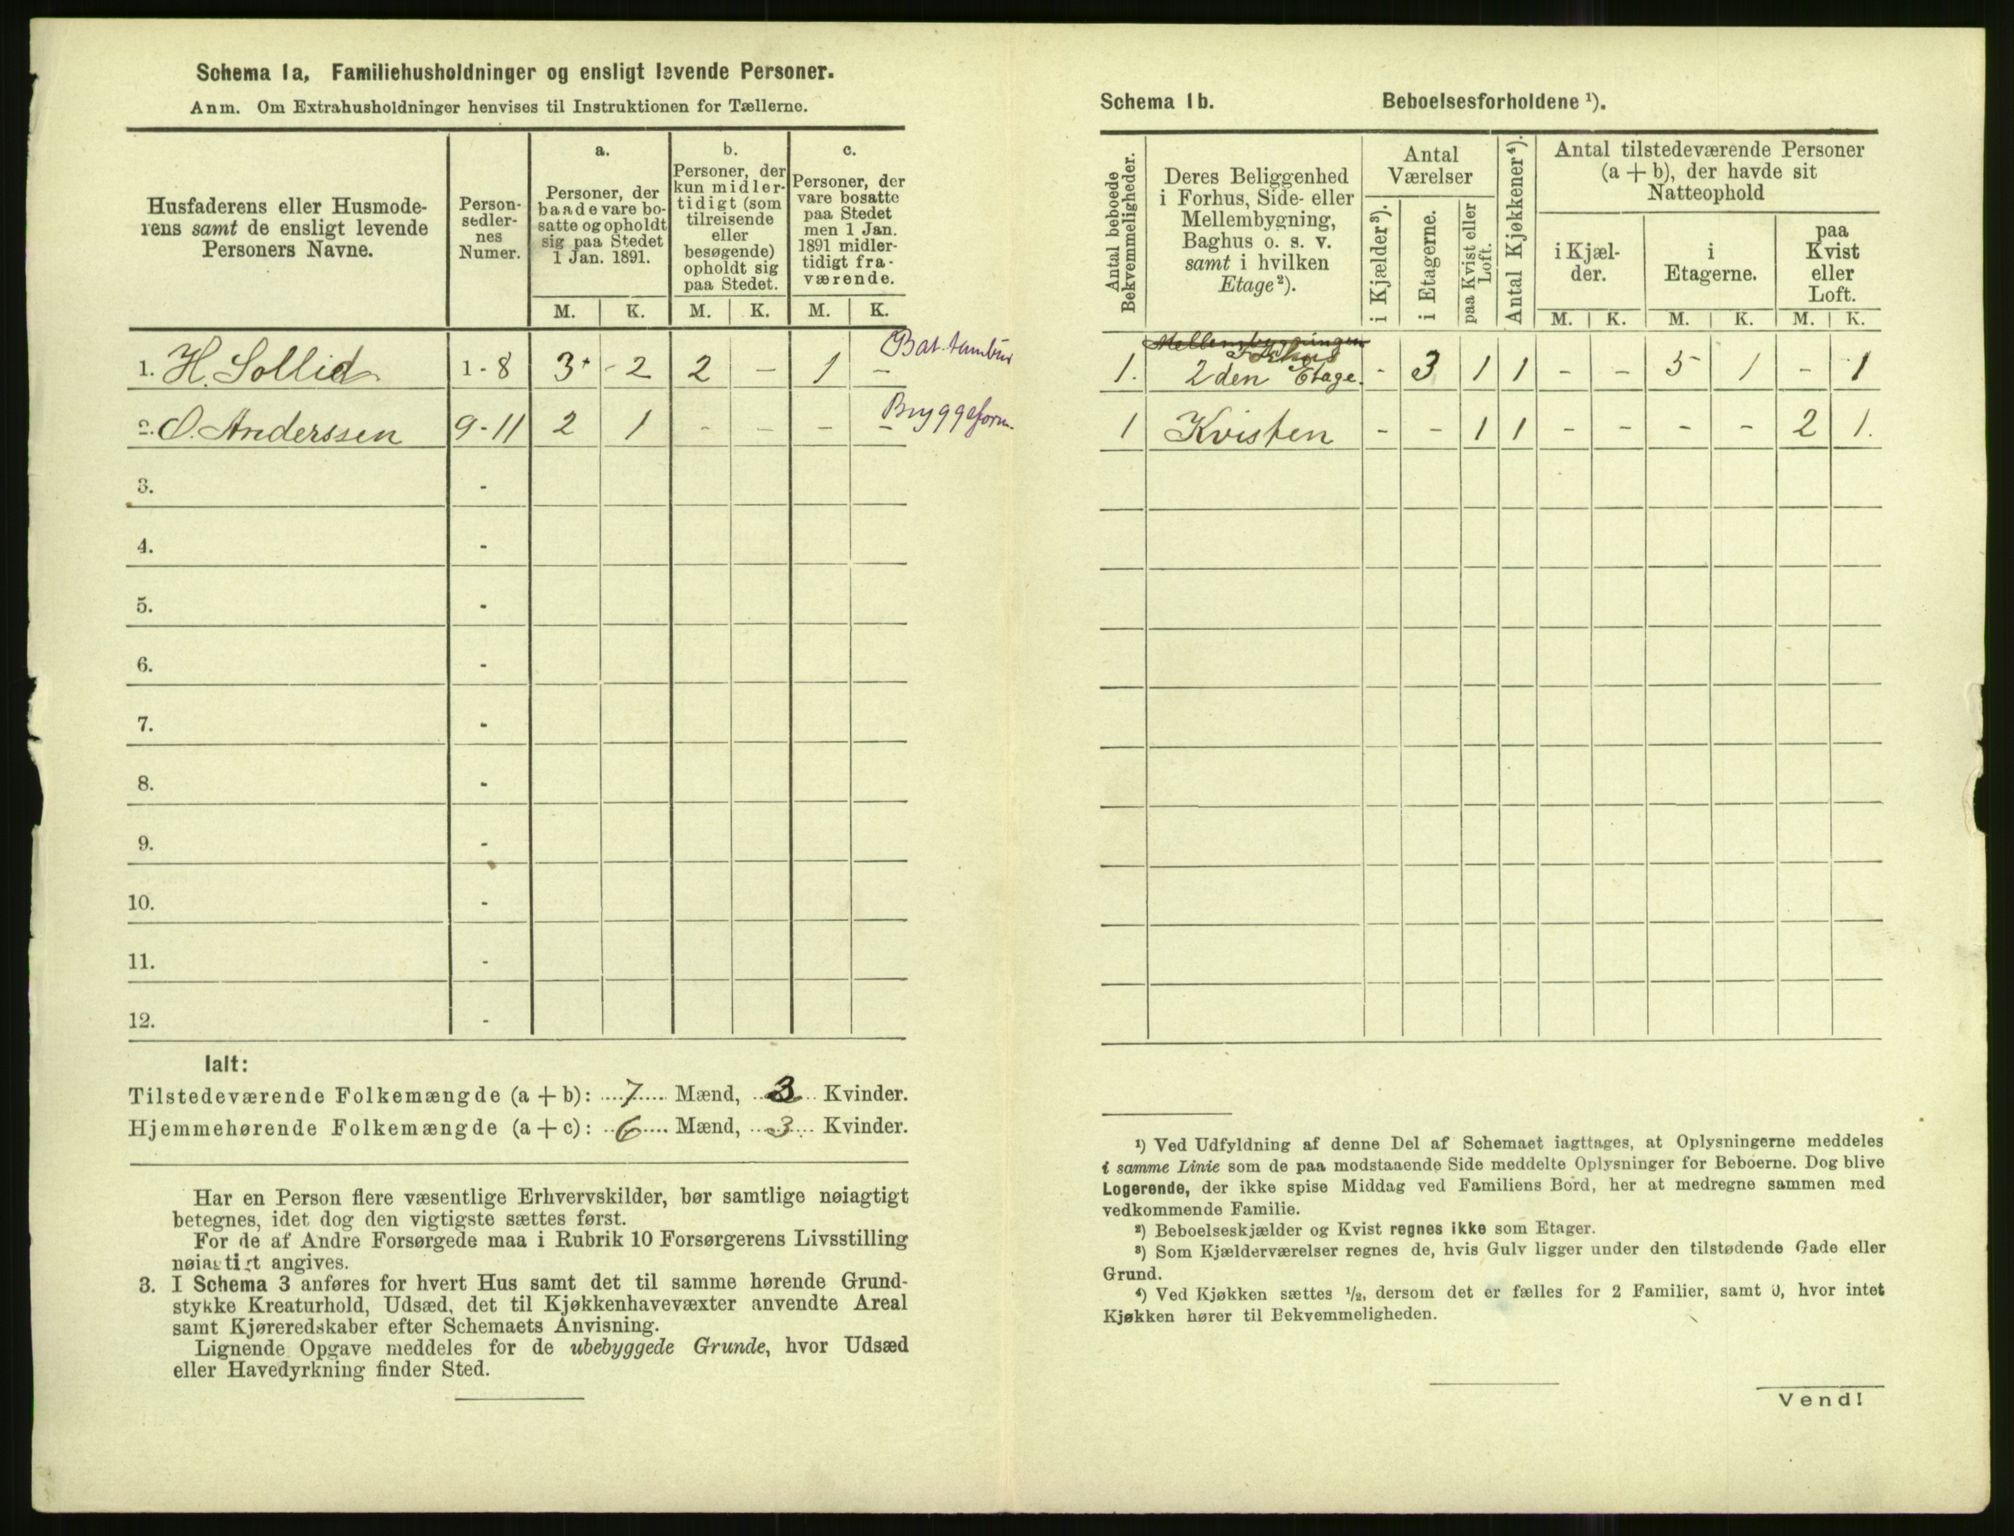 Schema 1a, Familiehusholdninger og ensligt levende Personer.
Anm. Om Extrahusholdninger henvises til Instruktionen for Tællerne.
Husfaderens eller Husmode-
rens samt de ensligt levende
Personers Navne.
Person-
sedler-
nes
Numer.
a.
Personer, der
baade vare bo-
satte og opholdt
sig paa Stedet
1 Jan. 1891.
b.
Personer, der
kun midler-
tidigt (som
tilreisende
eller
besøgende)
opholdt sig
paa Stedet.
c.
Personer, der
vare bosatte
paa Stedet
men 1 Jan.
1891 midler-
tidigt fra-
værende.
M. K. M. K. M. K.
1. H. Sollid 1-8 3 - 2 2 - 1 - Bat. tambur
2. O. Anderssen 9-11 2 1 - - - - Bryggeform.
3. -
4. -
5. -
6. -
7. -
8. -
9. -
10. -
11. -
12. -
Ialt:
Tilstedeværende Folkemængde (a + b): 7 Mænd, 3 Kvinder.
Hjemmehørende Folkemængde (a + c): 6 Mænd, 3 Kvinder.
Har en Person flere væsentlige Erhvervskilder, bør samtlige nøiagtigt
betegnes, idet dog den vigtigste sættes først.
For de af Andre Forsørgede maa i Rubrik 10 Forsørgerens Livsstilling
nøiagtigt angives.
3. I Schema 3 anføres for hvert Hus samt det til samme hørende Grund-
stykke Kreaturhold, Udsæd, det til Kjøkkenhavevæxter anvendte Areal
samt Kjøreredskaber efter Schemaets Anvisning.
Lignende Opgave meddeles for de ubebyggede Grunde, hvor Udsæd
eller Havedyrkning finder Sted.
Schema 1b. Beboelsesforholdene ¹).
Antal beboede
Bekvemmeligheder.
Deres Beliggenhed
i Forhus, Side- eller
Mellembygning,
Baghus o. s. v.
samt i hvilken
Etage²).
Antal
Værelser
i Kjælder³).
i Etagerne.
paa Kvist eller
Loft.
Antal Kjøkkener⁴).
Antal tilstedeværende Personer
(a + b), der havde sit
Natteophold
i Kjæl-
der.
i
Etagerne.
paa
Kvist
eller
Loft.
M. K. M. K. M. K.
Mellembygningen
Forhus
1. 2den Etage. - 3 1 1 - - 5 1 - 1
1 Kvisten - - 1 1 - - - - 2 1.
¹) Ved Udfyldning af denne Del af Schemaet iagttages, at Oplysningerne meddeles
i samme Linie som de paa modstaaende Side meddelte Oplysninger for Beboerne. Dog blive
Logerende, der ikke spise Middag ved Familiens Bord, her at medregne sammen med
vedkommende Familie.
²) Beboelseskjælder og Kvist regnes ikke som Etager.
³) Som Kjælderværelser regnes de, hvis Gulv ligger under den tilstødende Gade eller
Grund.
⁴) Ved Kjøkken sættes ½, dersom det er fælles for 2 Familier, samt 0, hvor intet
Kjøkken hører til Bekvemmeligheden.
Vend!